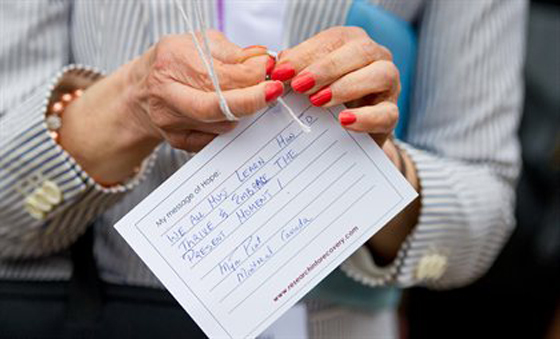 My message of Hope:
WE ALL MUS LEARN HOW TO
THRIVE & EMBRACE THE
PRESENT MOMENT!
Montreal Canada
www.researchintorecovery.com